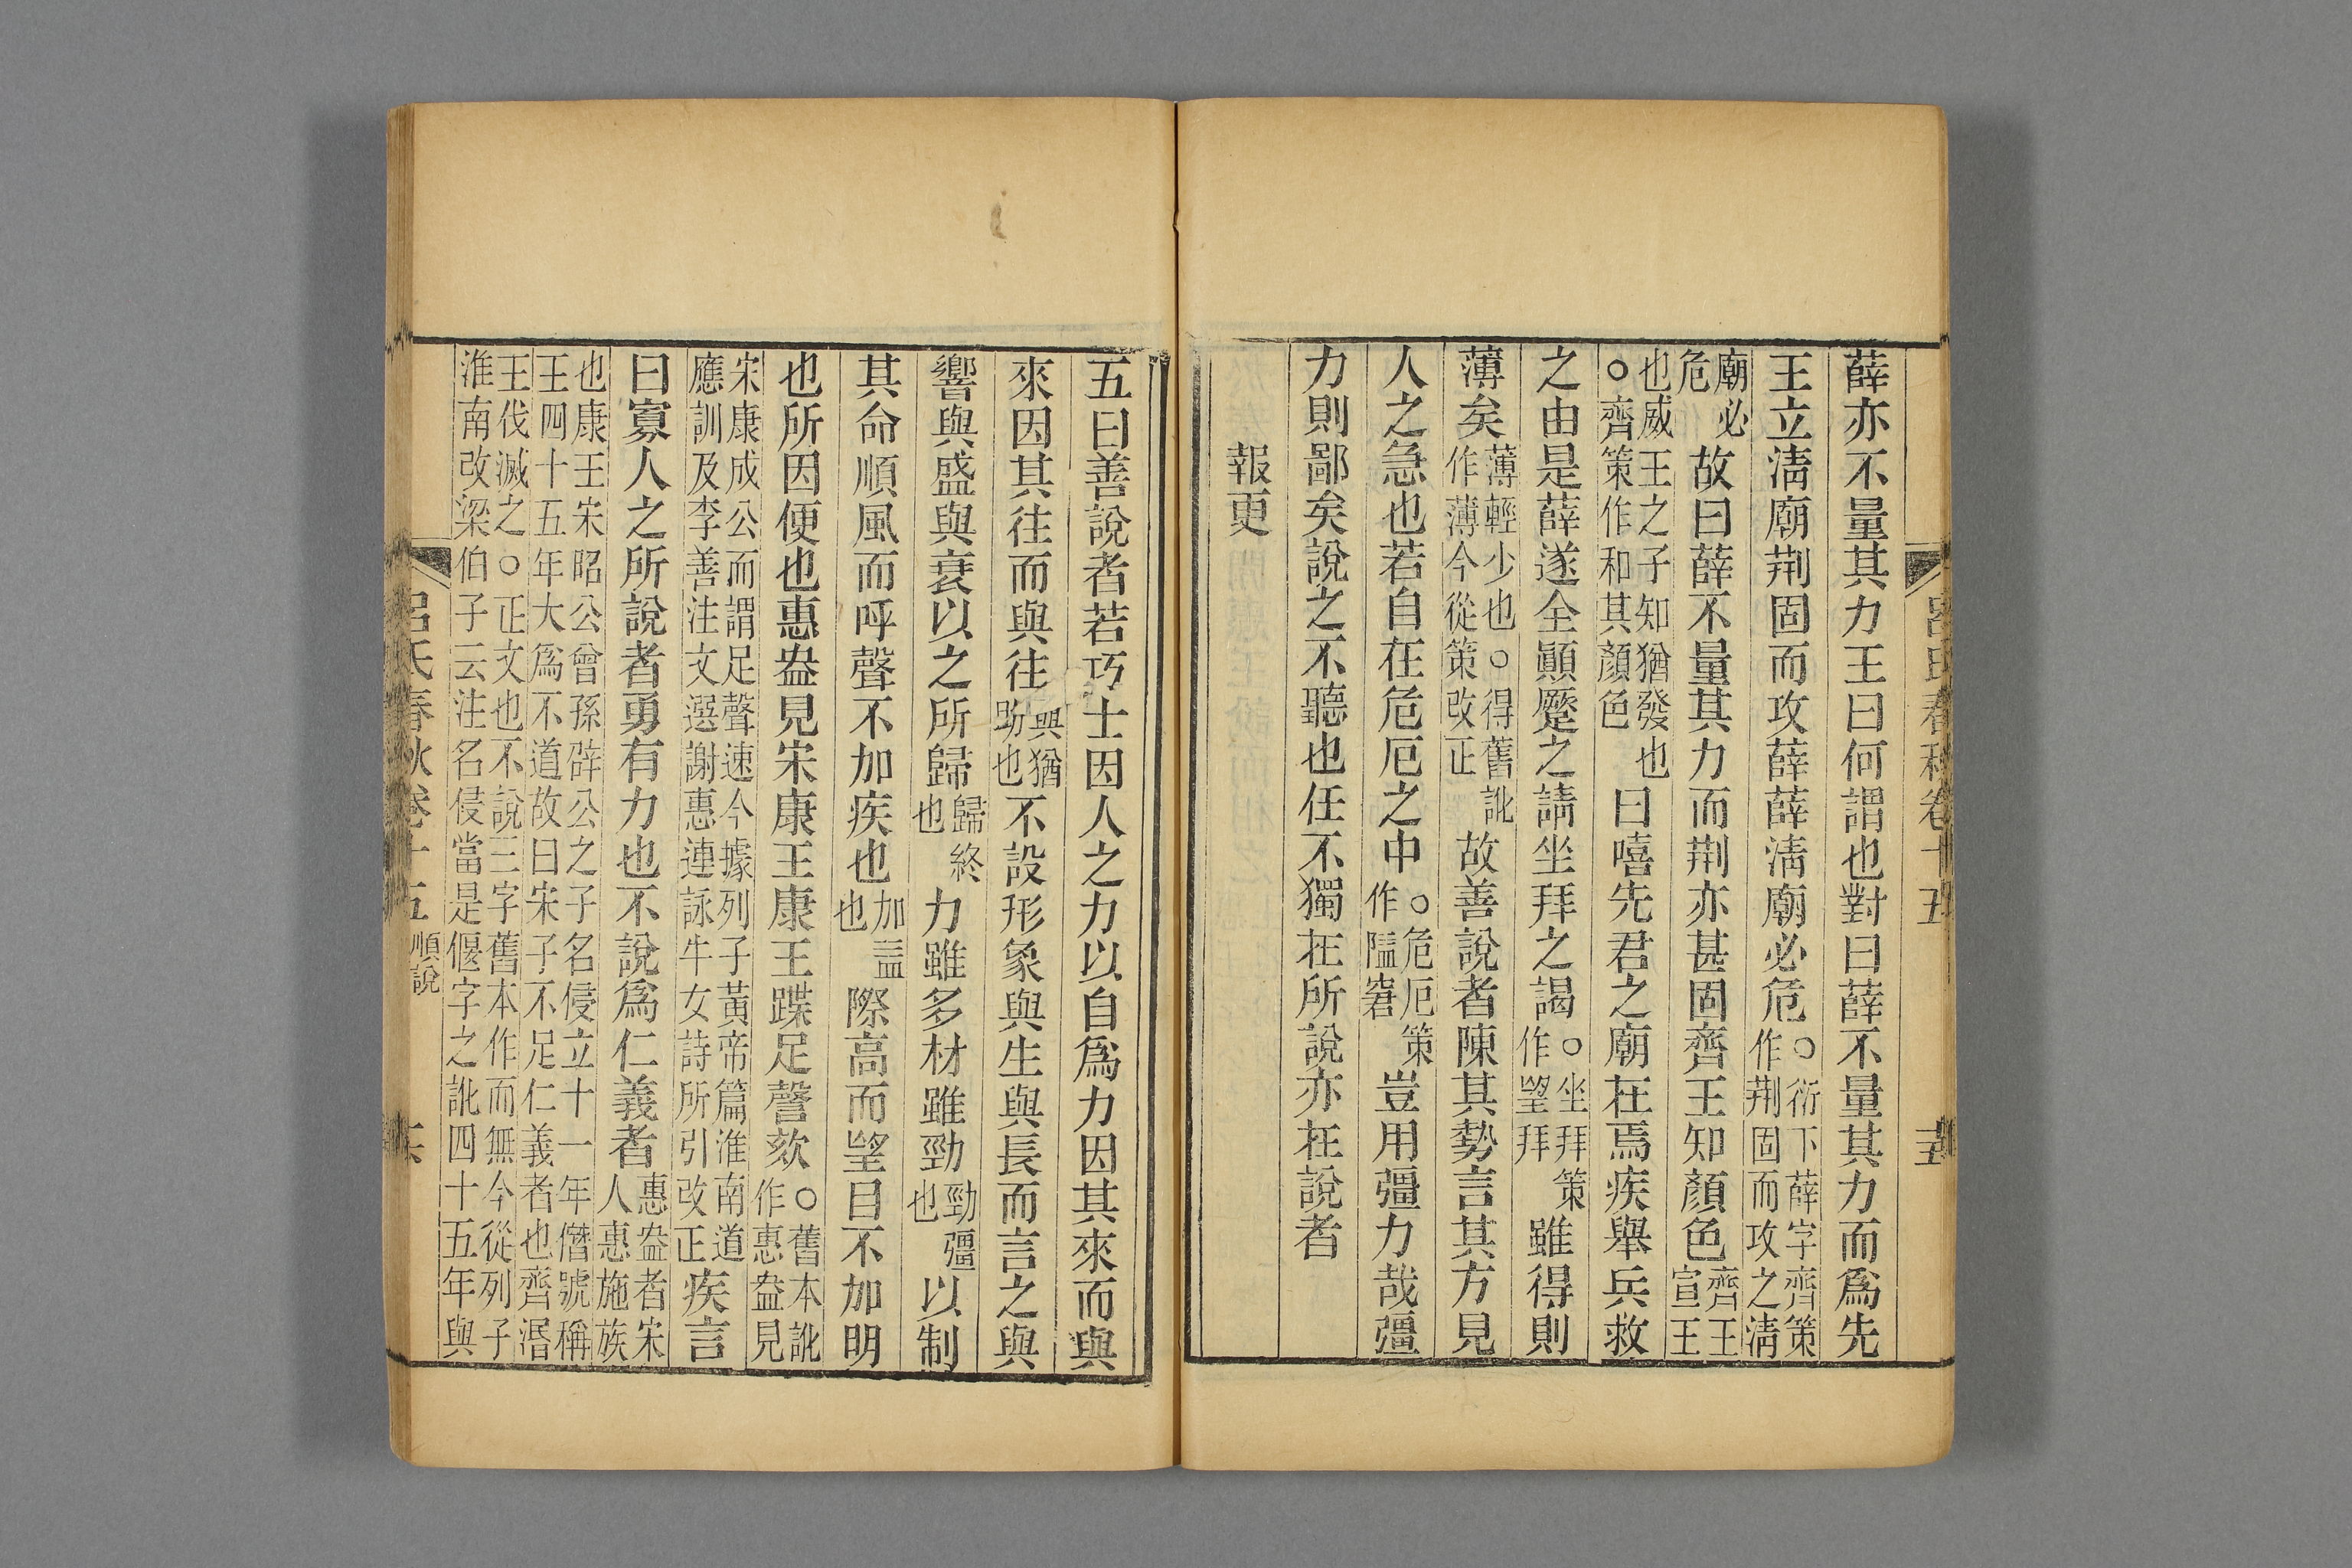 呂氏春秋卷十五
十五
薛亦不量其力王曰何謂也對曰薛不量其力而爲先
王立淸廟荆固而攻薛薛淸廟必危○衍下薛字齊策作荆固而攻之淸
廟必危故曰薛不量其力而荆亦甚固齊王知顏色齊王宣王
也威王之子知猶發也○齊策作和其顏色曰嘻先君之廟在焉疾舉兵救
之由是薛遂全顚蹷之請坐拜之謁○坐拜策作望拜雖得則
薄矣薄輕少也○得舊訛作薄今從策改正故善說者陳其勢言其方見
人之急也若自在危厄之中○危厄策作隘窘豈用彊力哉彊
力則鄙矣說之不聽也任不獨在所說亦在說者
報更
五曰善說者若巧士因人之力以自爲力因其來而與
來因其往而與往與猶助也不設形象與生與長而言之與
響與盛與衰以之所歸歸終也力雖多材雖勁勁彊也以制
其命順風而呼聲不加疾也加益也際高而望目不加明
也所因便也惠盎見宋康王康王蹀足謦欬○舊本訛作惠盎見
宋康成公而謂足聲速今據列子黃帝篇淮南道應訓及李善注文選謝惠連詠牛女詩所引改正疾言
曰寡人之所說者勇有力也不說爲仁義者惠盎者宋人惠施族
也康王宋昭公曾孫辟公之子名侵立十一年僭號稱王四十五年大爲不道故曰宋子不足仁義者也齊湣
王伐滅之○正文也不說三字舊本作而無今從列子淮南改梁伯子云注名侵當是偃字之訛四十五年與
呂氏春秋卷十五 順說
十六